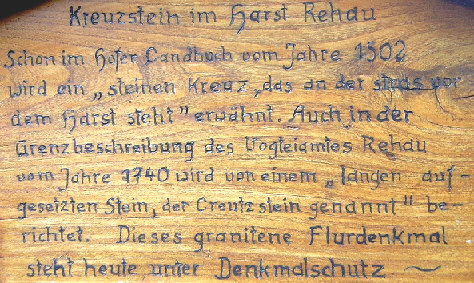 Kreuzstein im Harst Rehau
Schon im Hofer Landbuch vom Jahre 1502
wird ein „steinen Kreuz, das an der studs vor
dem Harst steht" erwähnt. Auch in der
Grenzbeschreibung des Vogteiamtes Rehau
vom Jahre 1740 wird von einem „langen auf-
gesetzten Stein, der Creutzstein genannt" be-
richtet. Dieses granitene Flurdenkmal
steht heute unter Denkmalschutz